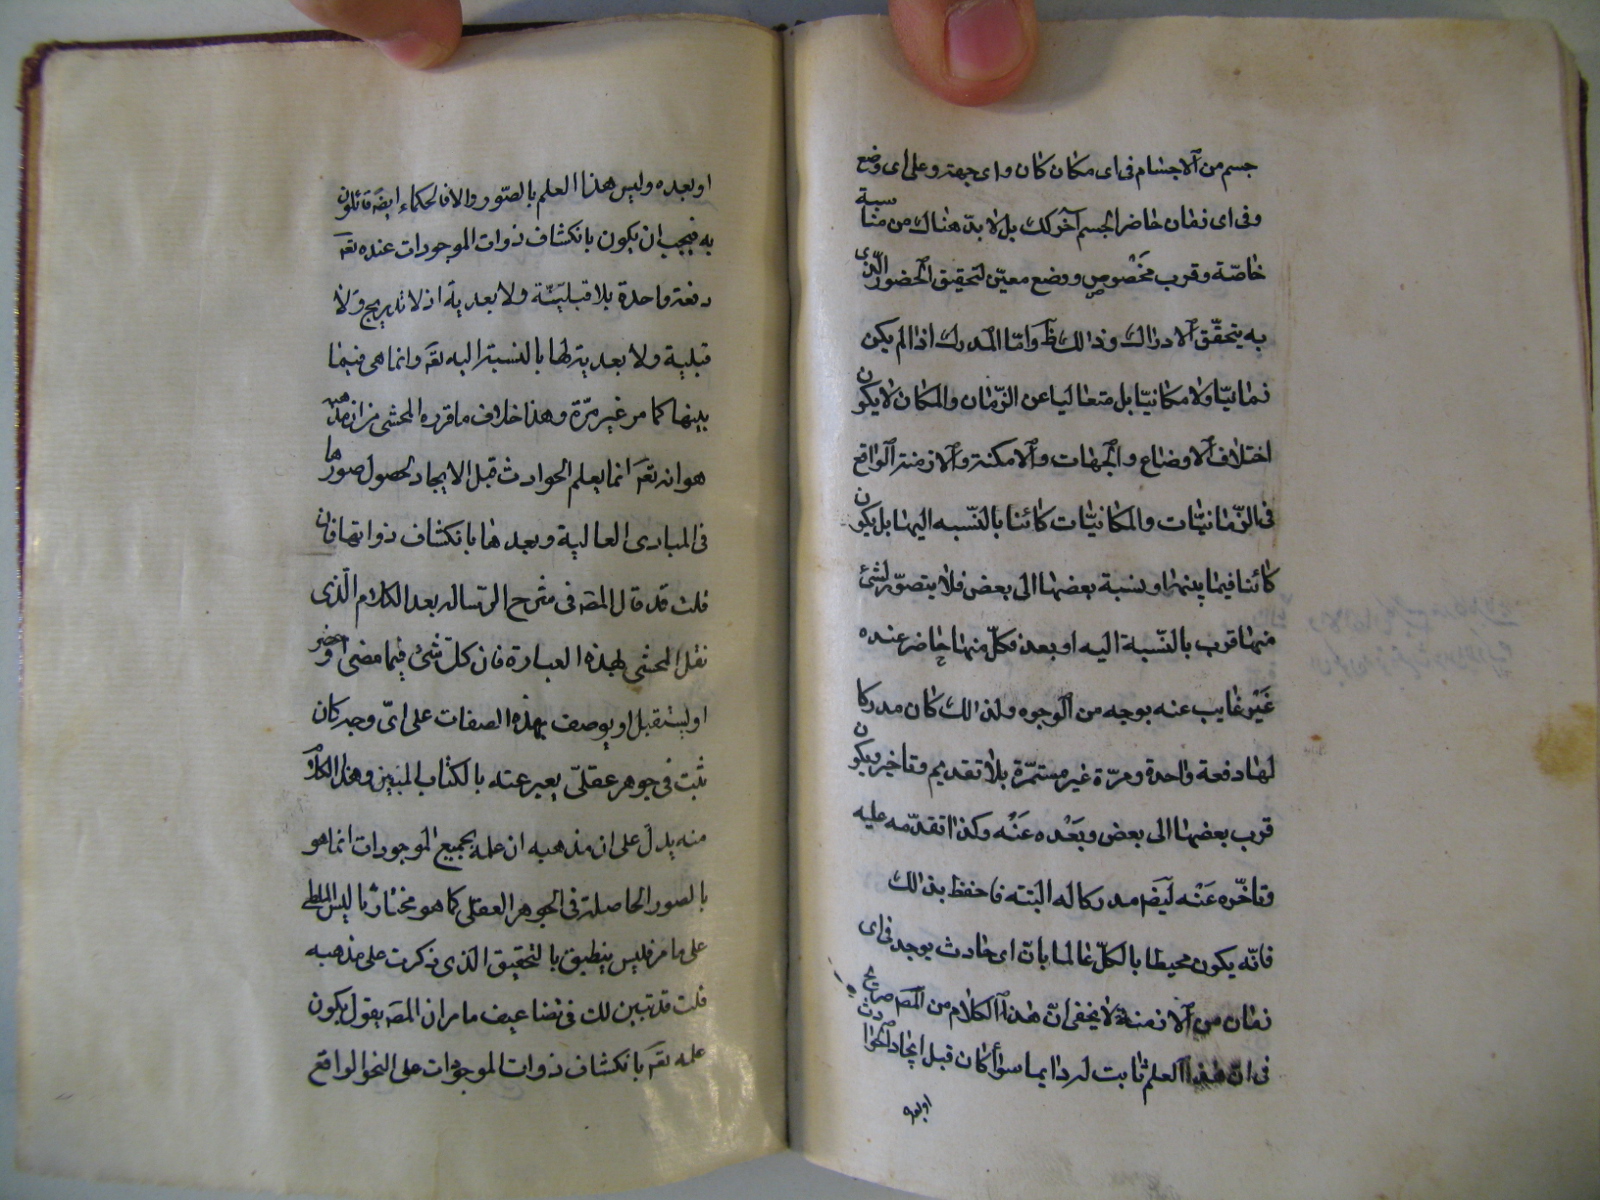 جسم من الاجسام فى اى مكان كان واى جهة وعلى اى وضع
وفى اى زمان حاضرا لجسم آخر كك بل لا بد هناك من مناسبة
خاصّة وقرب مخصوص ووضع معيّن لتحقيق الحضور الّذى
به يتحقّق الادراك وذالك ظ وامّا المدرك اذا لم يكن
زمانيّا ولا مكانيّا بل متعاليا عن الزّمان والمكان لا يكون
اختلاف الاوضاع والجهات والامكنة والازمنة الواقع
فى الزّمانيّات والمكانيّات كائنا بالنّسبه اليها بل يكون
كائنا فيما بينها وبنسبة بعضها الى بعض فلا يتصوّر لشئ
منها قرب بالنّسبة اليه او بعد فكلّ منها حاضر عنده
غير غايب عنه بوجه من الوجوه ولذالك كان مدركا
لها دفعة واحدة ومرّة غير مستمرّة بلا تقديم وتاخير ويكون
قرب بعضها الى بعض وبعده عنه وكذا تقدّمه عليه
وتاخّره عنه ايضه مدركا له البته فاحفظ بذالك
فانّه يكون محيطا بالكلّ عالما بانّ اى حادث يوجد فى اى
زمان من الازمنة لا يخفى انّ هذا الكلام من المصه صريح
فى انّ هذا العلم ثابت له دايما سوآ كان قبل ايجاد الحوادث
او بعده
او بعده وليس هذا العلم بالصّور والا فالحكماء ايضه قائلون
به فيجب ان يكون بانكشاف ذوات الموجودات عنده تقه
دفعة واحدة بلا قبليّة ولا بعدية اذ لا تدريج ولا
قبلية ولا بعدية لها بالنسبة اليه تقه وانما هى فيما
بينها كما مر غير مرّة وهذا خلاف ما قرره المحشى من ان مذهبه
هو انه تقه انما يعلم الحوادث قبل الايجاد لحصول صورها
فى المبادى العالية وبعدها بانكشاف ذواتها فان
قلت قد قال المصه فى شرح الرساله بعد الكلام الّذى
نقل المحشى بهذه العبارة فان كل شئ فيما مضى او حضر
او يستقبل او يوصف بهذه الصفات على اىّ وجه كان
ثبت فى جوهر عقلىّ يعبر عنه بالكتاب المبين وهذا الكلام
منه يدلّ على ان مذهبه ان علمه بجميع الموجودات انما هو
بالصور الحاصلة فى الجوهر العقلى كما هو مختار ثاليس الملطى
على ما مر فليس ينطبق بالتحقيق الذى ذكرت على مذهبه
قلت قد تبين لك فى تضاعيف ما مر ان المصه يقول يكون
علمه تقه بانكشاف ذوات الموجودات على النحو الواقع